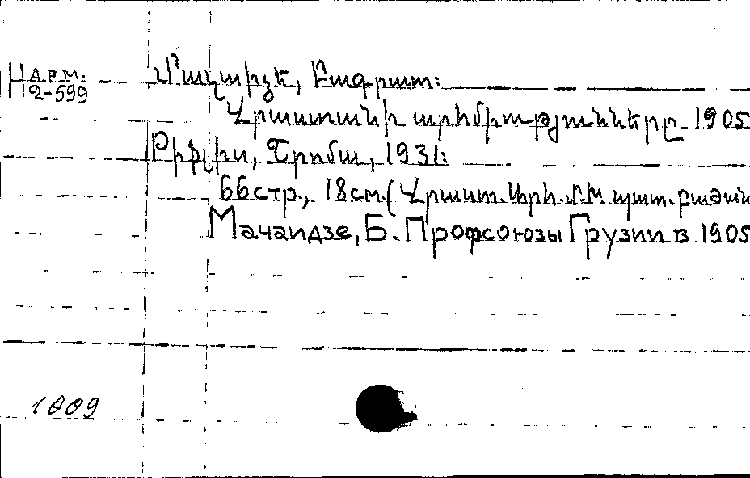 Н АРМ.
2-599
Մաչաիզե, Բագրատ։
Վրաստանի արհմիությունները 1905
Թիֆլիս, Շրոմա, 1931։
66 стр., 18 см. (Վրաստ. Արհ. Մ.Խ. պատ. բաժան
Мачаидзе, Б. Профсоюзы Грузии в 1905
1809